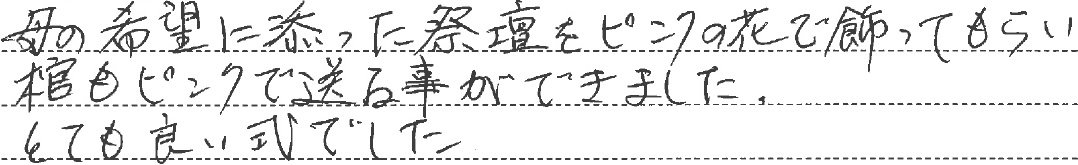 母の希望に添った祭壇をピンクの花で飾ってもらい
棺もピンクで送る事ができました.
とても良い式でした